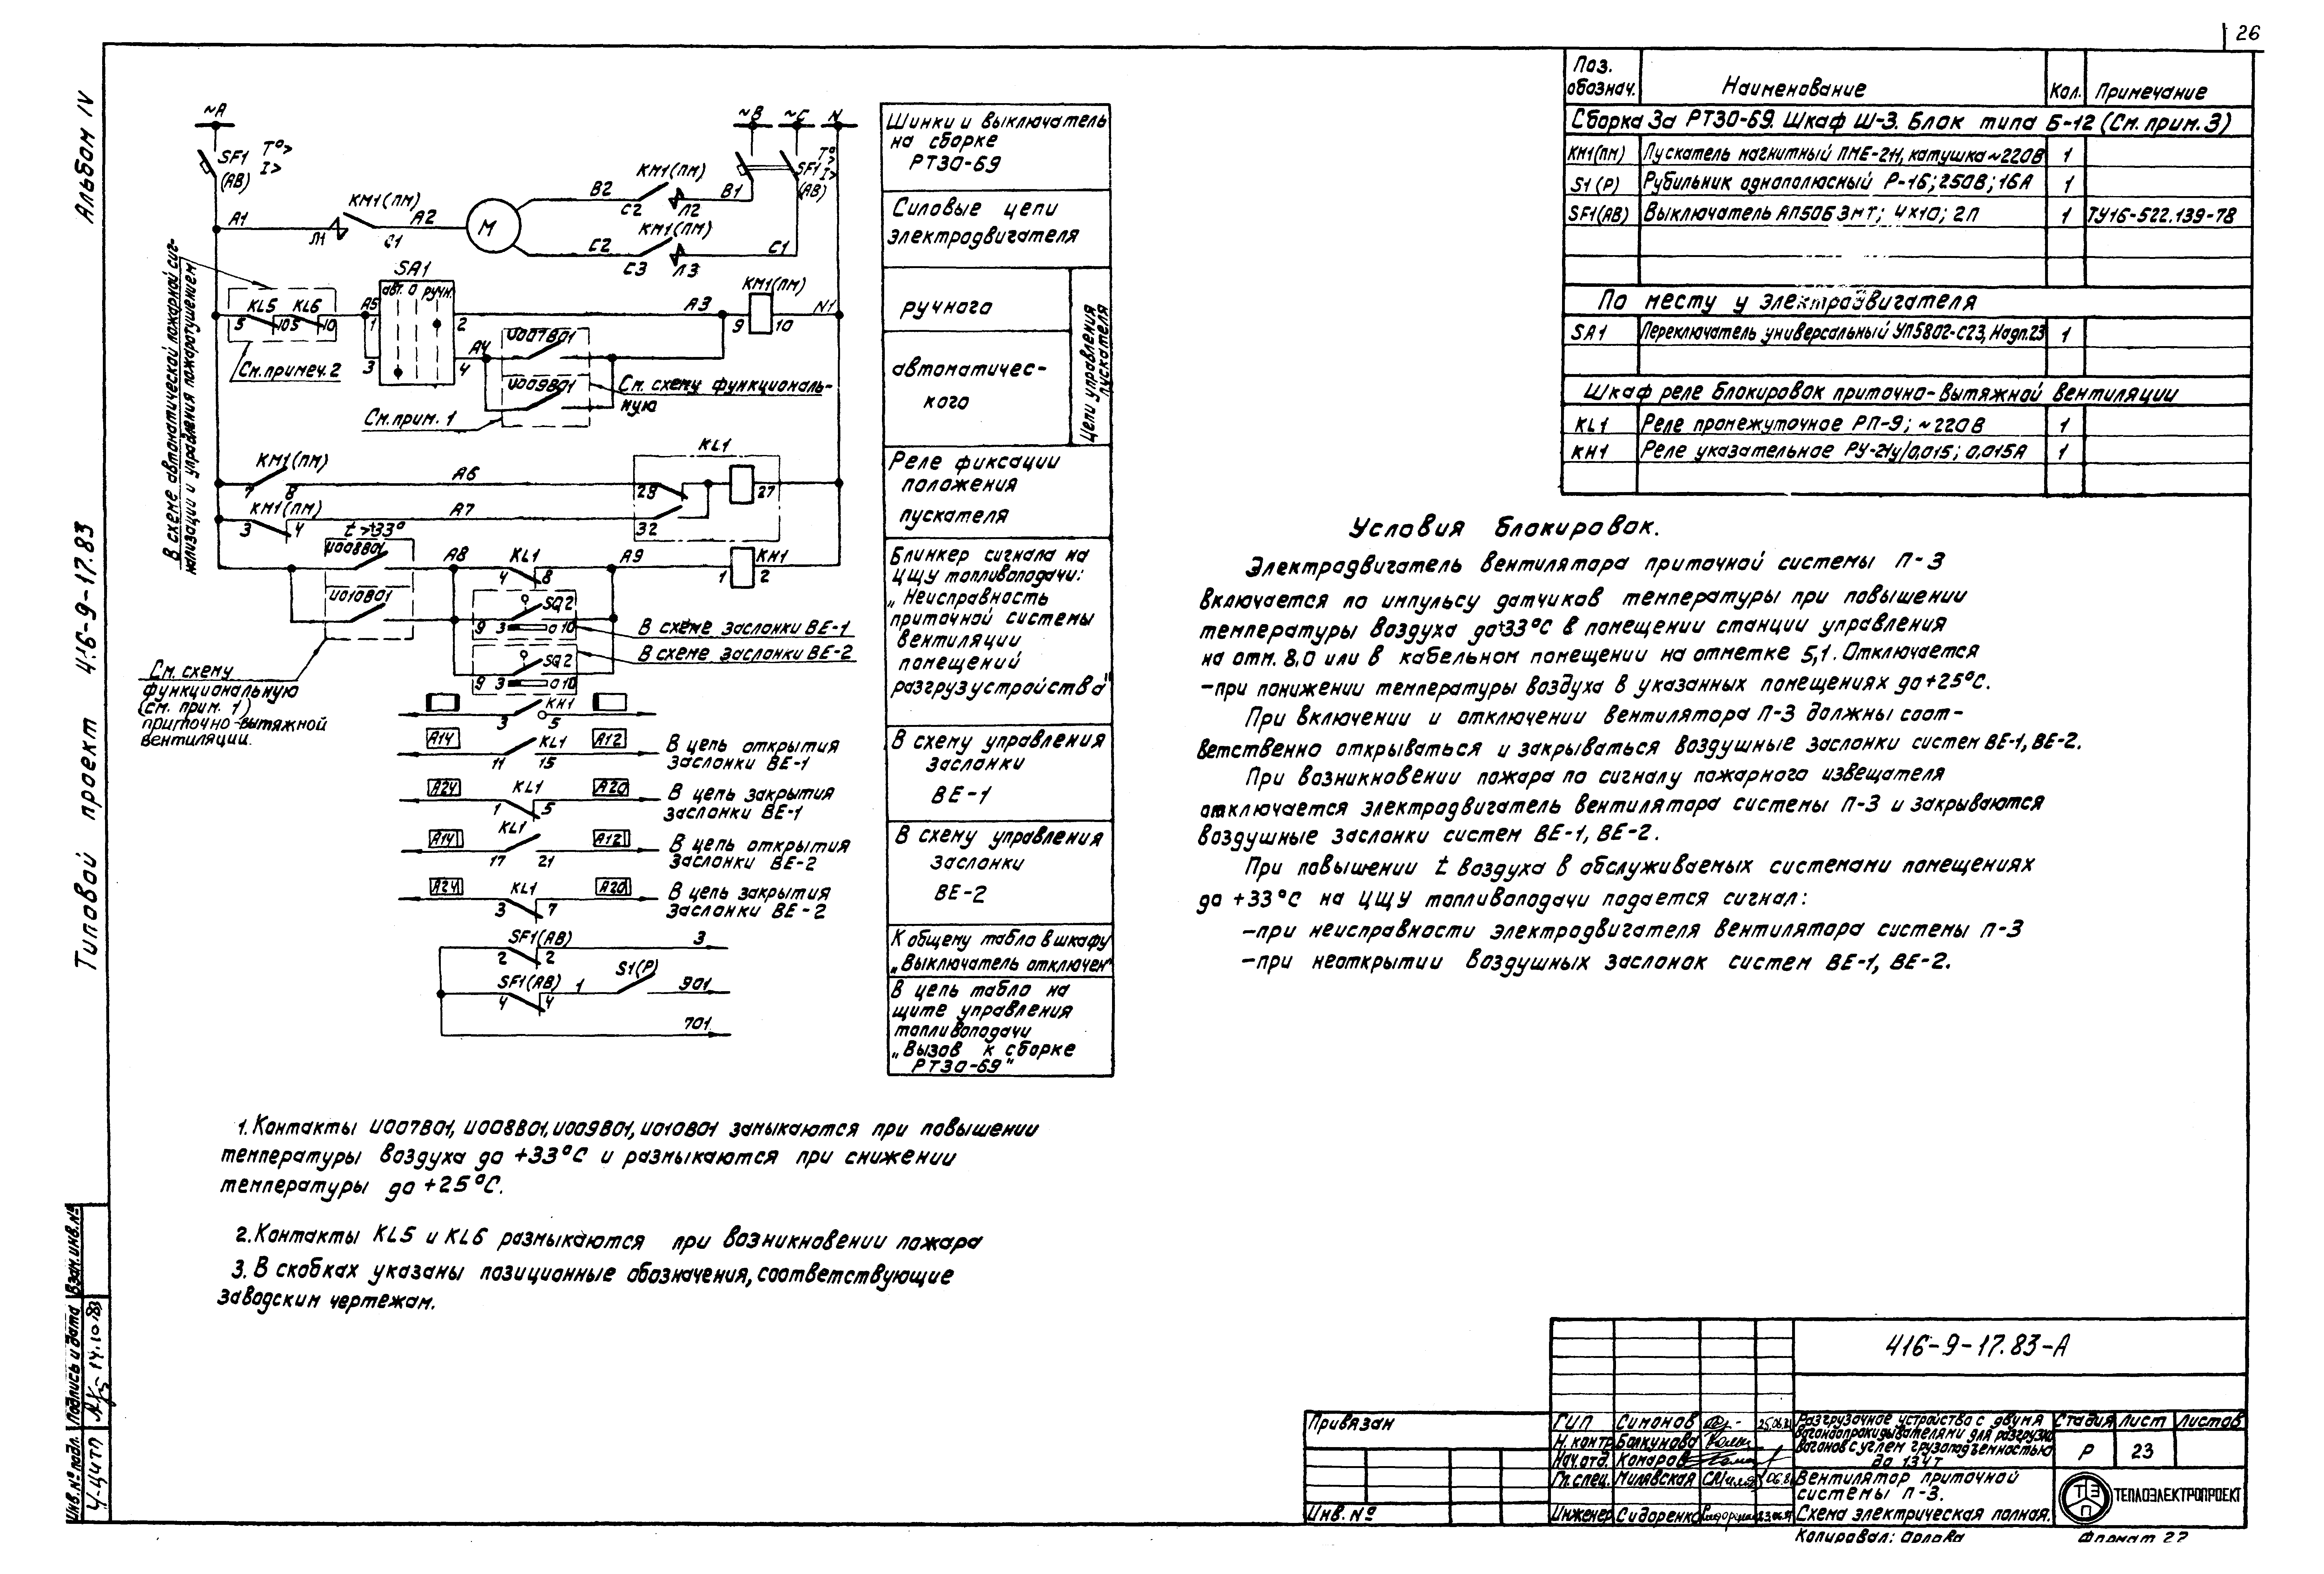 26
Альбом IV
Типовой проект 416-9-17.83
~A
~B
~C
N
SF1
(АВ)
T°>
I>
КМ1(ПМ)
КМ1(ПМ)
КМ1(ПМ)
B2
B1
C2
Л2
A1
Л1
C1
A2
М
C2
C3
Л3
C1
SF1
(АВ)
T°>
I>
В схеме автоматической пожарной сиг-
нализации и управления пожаротушением
SA1
авт. О ручн.
KL5
KL6
5
10
5
10
A5
1
3
2
4
A3
A4
КМ1(ПМ)
9
10
N1
U007B01
U009B01
См. примеч. 2
См. прим. 1
См. схему функциональ-
ную
КМ1(ПМ)
7
8
A6
KL1
28
27
КМ1(ПМ)
3
4
A7
32
t>+33°
U008B01
U010B01
A8
KL1
4
8
A9
KH1
1
2
SQ2
9 3 10
В схеме заслонки ВЕ-1
SQ2
9 3 10
В схеме заслонки ВЕ-2
См. схему
функциональную
(см. прим. 1)
приточно-вытяжной
вентиляции.
KH1
3
5
A14
KL1
A12
11
15
В цепь открытия
заслонки ВЕ-1
A24
KL1
A20
1
5
В цепь закрытия
заслонки ВЕ-1
A14
KL1
A12
17
21
В цепь открытия
заслонки ВЕ-2
A24
KL1
A20
3
7
В цепь закрытия
заслонки ВЕ-2
SF1(АВ)
2
2
3
SF1(АВ)
4
4
1
S1(Р)
901
701
Шинки и выключатель
на сборке
РТЗО-69
Силовые цепи
электродвигателя
ручного
автоматичес-
кого
Цепи управления
пускателя
Реле фиксации
положения
пускателя
Блинкер сигнала на
ЦЩУ топливоподачи:
„Неисправность
приточной системы
вентиляции
помещений
разгрузустройства"
В схему управления
заслонки
ВЕ-1
В схему управления
заслонки
ВЕ-2
К общему табло в шкафу
„Выключатель отключен
В цепь табло на
щите управления
топливоподачи
„Вызов к сборке
РТЗО-69"
1. Контакты U007B01, U008B01, U009B01, U010B01 замыкаются при повышении
температуры воздуха до +33°С и размыкаются при снижении
температуры до +25°С.
2. Контакты KL5 и KL6 размыкаются при возникновении пожара
3. В скобках указаны позиционные обозначения, соответствующие
заводским чертежам.
Поз. обознач. Наименование Кол. Примечание
Сборка 3а РТЗО-69. Шкаф Ш-3. Блок типа Б-12 (См. прим. 3)
КМ1(ПМ) Пускатель магнитный ПМЕ-211, катушка ~220В 1
S1(Р) Рубильник однополюсный Р-16; 250В; 16А 1
SF1(АВ) Выключатель АП50Б 3МТ; 4х10; 2П 1 ТУ16-522.139-78
По месту у электродвигателя
SA1 Переключатель универсальный УП5802-С23, Надп. 23 1
Шкаф реле блокировок приточно-вытяжной вентиляции
KL1 Реле промежуточное РП-9; ~220В 1
KH1 Реле указательное РУ-21у/0,015; 0,015А 1
Условия блокировок.
Электродвигатель вентилятора приточной системы П-3
включается по импульсу датчиков температуры при повышении
температуры воздуха до +33°С в помещении станции управления
на отм. 8,0 или в кабельном помещении на отметке 5,1. Отключается
-при понижении температуры воздуха в указанных помещениях до +25°С.
При включении и отключении вентилятора П-3 должны соот-
ветственно открываться и закрываться воздушные заслонки систем ВЕ-1, ВЕ-2.
При возникновении пожара по сигналу пожарного извещателя
отключается электродвигатель вентилятора системы П-3 и закрываются
воздушные заслонки систем ВЕ-1, ВЕ-2.
При повышении t воздуха в обслуживаемых системами помещениях
до +33°С на ЦЩУ топливоподачи подается сигнал:
-при неисправности электродвигателя вентилятора системы П-3
-при неоткрытии воздушных заслонок систем ВЕ-1, ВЕ-2.
Взам. инв. №
Подпись и дата
14.10.83
Инв. № подл.
Ч-ЦИТП
Привязан
Инв. №
416-9-17.83-А
ГИП Симонов
Н. контр. Болкунова
Нач. отд. Комаров
Гл. спец. Милявская
Инженер Сидоренко
Разгрузочное устройство с двумя
вагоноопрокидывателями для разгрузки
вагонов с углем грузоподъемностью
до 134 т
Стадия Лист Листов
Р 23
Вентилятор приточной
системы П-3.
Схема электрическая полная.
ТЭП
ТЕПЛОЭЛЕКТРОПРОЕКТ
Копировал: Орлова
Формат 22